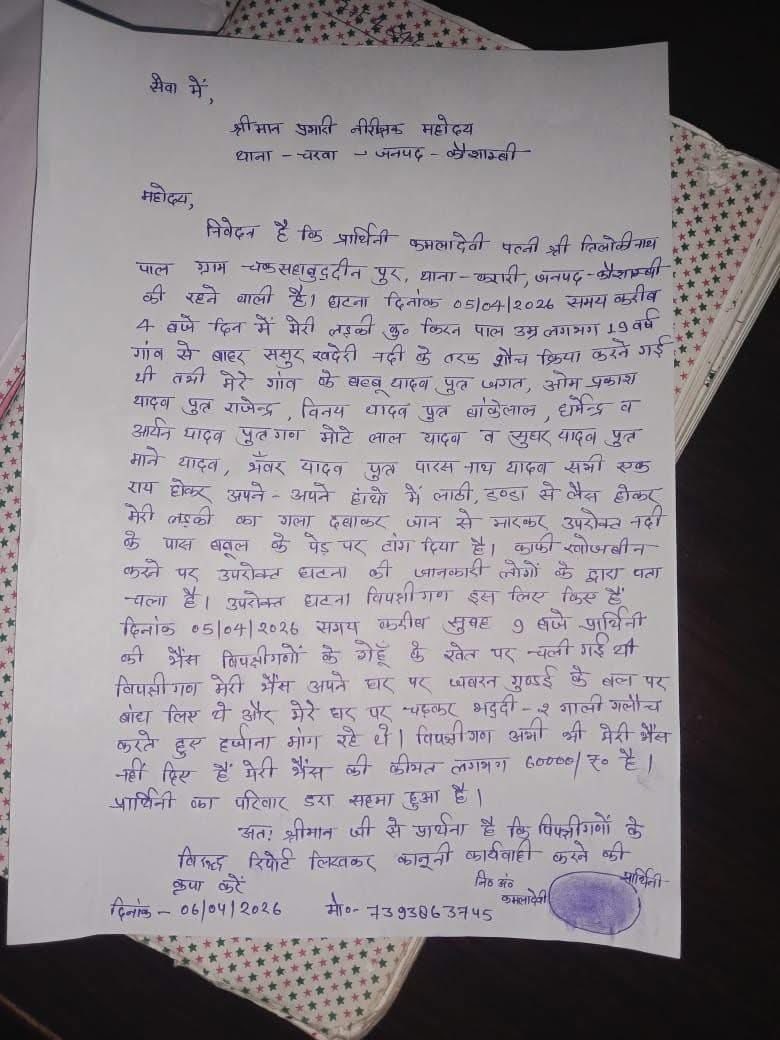 सेवा में,
श्रीमान प्रभारी निरीक्षक महोदय
थाना - चरवा - जनपद - कौशाम्बी
महोदय,
निवेदन है कि प्रार्थिनी कमलादेवी पत्नी श्री त्रिलोकीनाथ
पाल ग्राम चकसहाबुद्दीन पुर, थाना - करारी, जनपद - कौशाम्बी
की रहने वाली है। घटना दिनांक 05/04/2026 समय करीब
4 बजे दिन में मेरी लड़की कु० किरन पाल उम्र लगभग 19 वर्ष
गांव से बाहर ससुर खदेरी नदी के तरफ शौच क्रिया करने गई
थी तभी मेरे गांव के बब्बू यादव पुत्र जगत, ओम प्रकाश
यादव पुत्र राजेन्द्र, विनय यादव पुत्र बांकेलाल, धर्मेन्द्र व
आर्यन यादव पुत्रगण मोटे लाल यादव व सुघर यादव पुत्र
माने यादव, भँवर यादव पुत्र पारस नाथ यादव सभी एक
राय होकर अपने - अपने हांथो में लाठी, डण्डा से लैस होकर
मेरी लड़की का गला दबाकर जान से मारकर उपरोक्त नदी
के पास बबूल के पेड़ पर टांग दिया है। काफी खोजबीन
करने पर उपरोक्त घटना की जानकारी लोगों के द्वारा पता
चला है। उपरोक्त घटना विपक्षीगण इस लिए किए हैं
दिनांक 05/04/2026 समय करीब सुबह 9 बजे प्रार्थिनी
की भैंस विपक्षीगणों के गेहूँ के खेत पर चली गई थी
विपक्षीगण मेरी भैंस अपने घर पर जबरन गुण्डई के बल पर
बांध लिए थे और मेरे घर पर चढ़कर भद्दी - २ गाली गलौच
करते हुए हर्जाना मांग रहे थे। विपक्षीगण अभी भी मेरी भैंस
नहीं दिए हैं मेरी भैंस की कीमत लगभग 60000/रु० है।
प्रार्थिनी का परिवार डरा सहमा हुआ है।
अतः श्रीमान जी से प्रार्थना है कि विपक्षीगणों के
विरुद्ध रिपोर्ट लिखकर कानूनी कार्यवाही करने की
कृपा करें
नि० अं० प्रार्थिनी
कमलादेवी
दिनांक - 06/04/2026 मो०- 7393863745